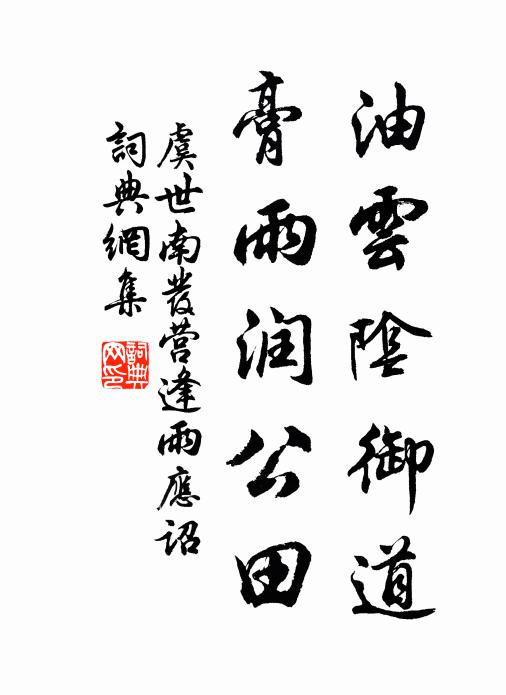 油雲陰御道
膏雨润公田
虞世南發营逢雨應诏
詞典網集
詞典網印